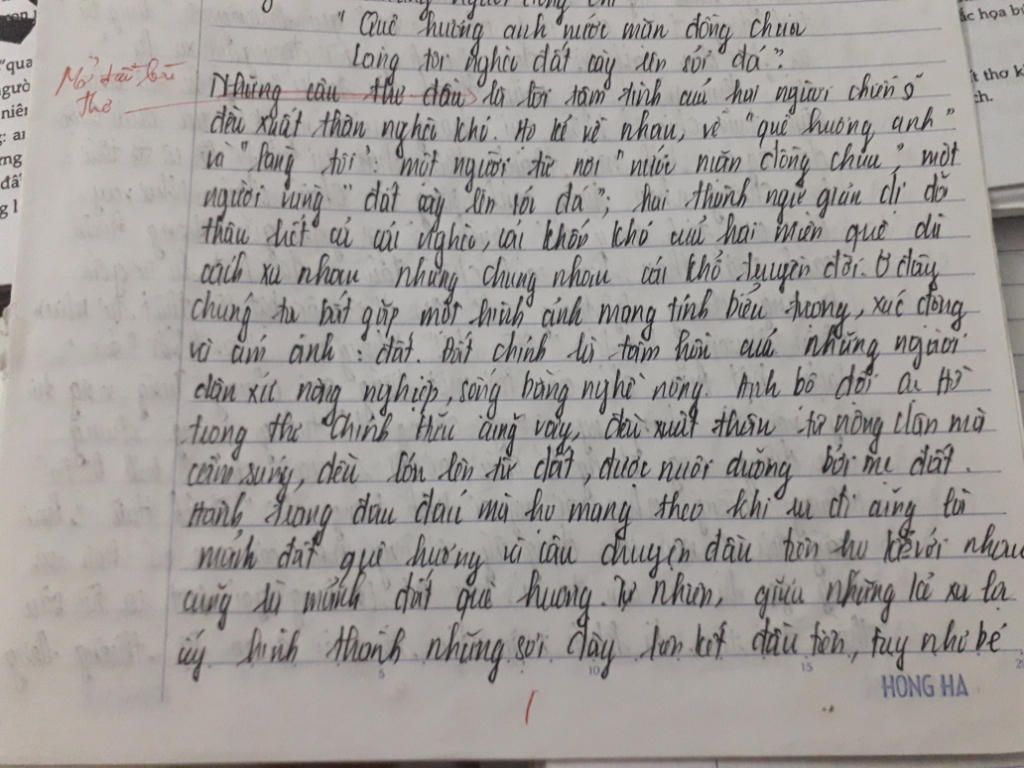 "Quê hương anh nước mặn đồng chua
Làng tôi nghèo đất cày lên sỏi đá".
Mở đầu bài
thơ
Những câu thơ đầu là lời tâm tình của hai người chiến sĩ
đều xuất thân nghèo khó. Họ kể về nhau, về "quê hương anh"
và "làng tôi": một người từ nơi "nước mặn đồng chua", một
người vùng "đất cày lên sỏi đá"; hai thành ngữ giản dị đã
thâu hết cả cái nghèo, cái khốn khó của hai miền quê dù
cách xa nhau nhưng chung nhau cái khổ truyền đời. Ở đây
chúng ta bắt gặp một hình ảnh mang tính biểu tượng, xúc động
và ám ảnh: đất. Đất chính là tâm hồn của những người
dân xứ nông nghiệp, sống bằng nghề nông. Anh bộ đội cụ Hồ
trong thơ Chính Hữu cũng vậy, đều xuất thân từ nông dân mà
cầm súng, đều lớn lên từ đất, được nuôi dưỡng bởi mẹ đất.
Hành trang đau đáu mà họ mang theo khi ra đi cũng là
mảnh đất quê hương và câu chuyện đầu tiên họ kể với nhau
cũng là mảnh đất quê hương. Tự nhiên, giữa những kẻ xa lạ
ấy hình thành những sợi dây liên kết đầu tiên, tuy nhỏ bé
5 10 15
HONG HA
1
"qua
ngườ
niên
đấ
g l
ắc họa
t thơ
ch.